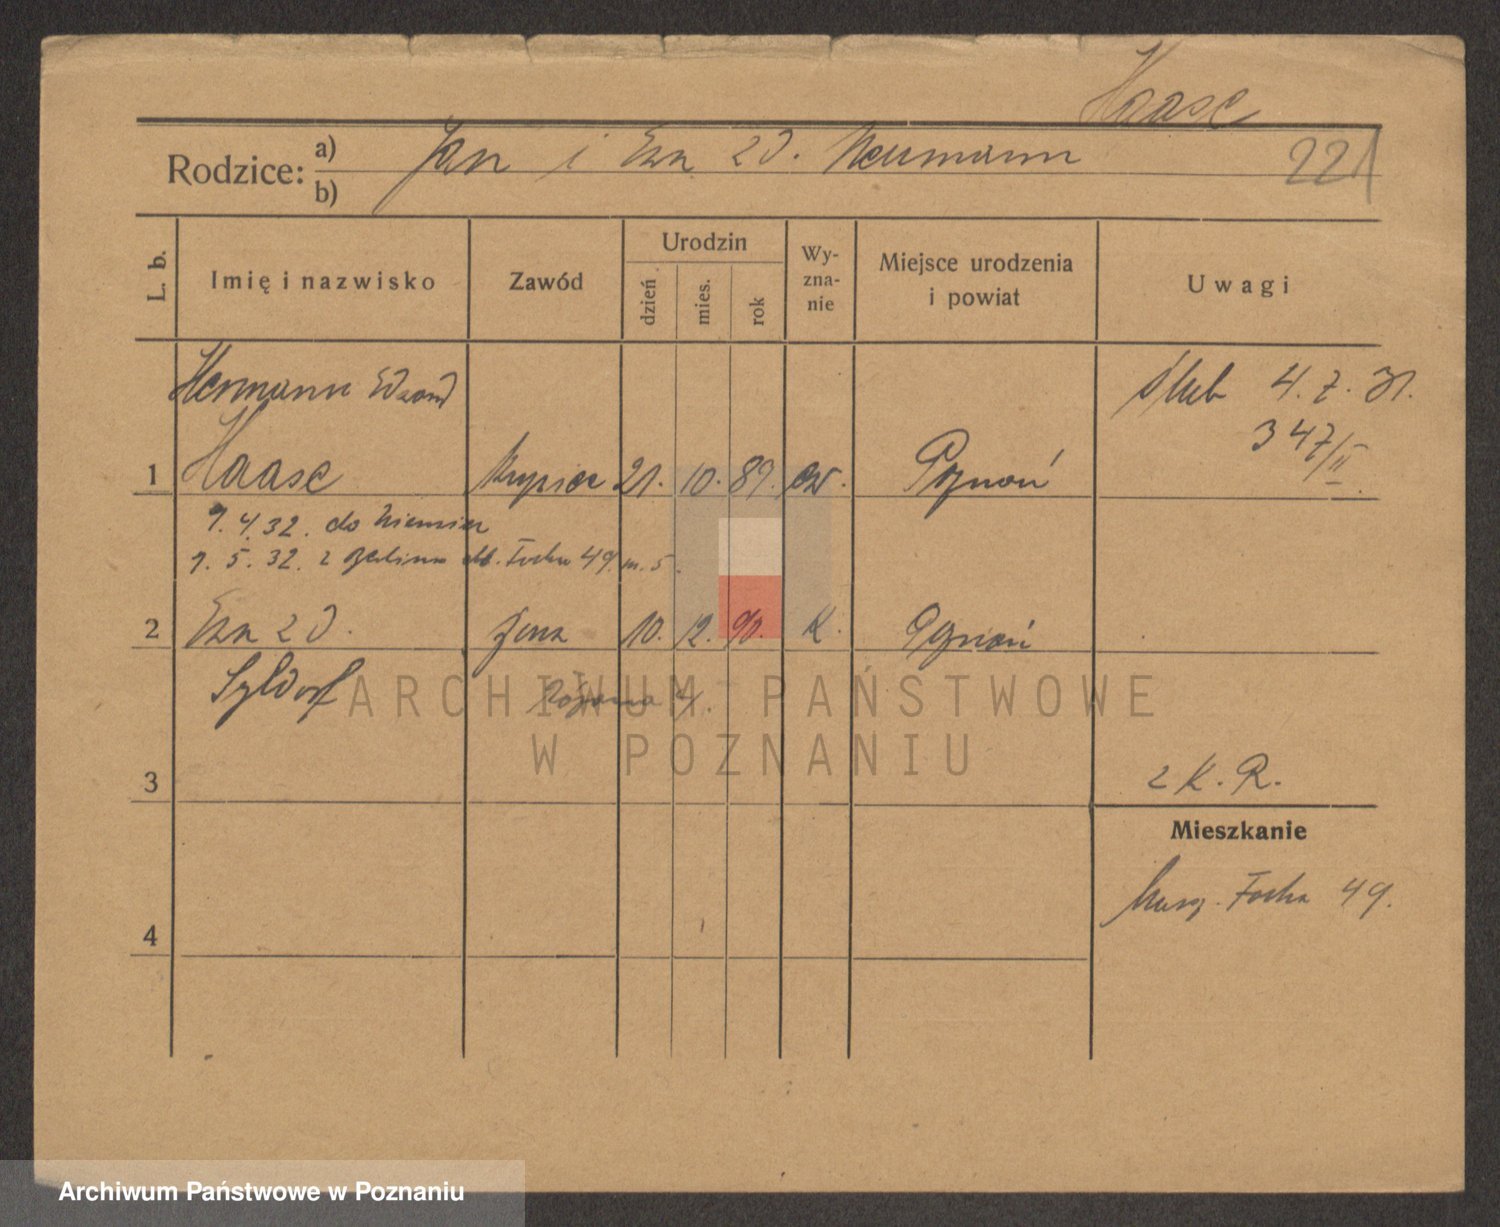 Haase
Rodzice: a) b) Jan i Ewa z d. Neumann
221
L. b.
Imię i nazwisko
Zawód
Urodzin
dzień
mies.
rok
Wy-
zna-
nie
Miejsce urodzenia
i powiat
Uwagi
Hermann Edward
ślub 4. 7. 31.
347/II.
1 Haase kupiec 21. 10. 89. ew. Poznań
9. 4. 32. do Niemiec
9. 5. 32. z Berlina Focha 49. m. 5.
2 Ewa z d. żona 10. 12. 90. k. Poznań
Syldorf Różana 4.
3
z K. R.
Mieszkanie
Marsz. Focha 49.
4
ARCHIWUM PAŃSTWOWE
W POZNANIU
Archiwum Państwowe w Poznaniu